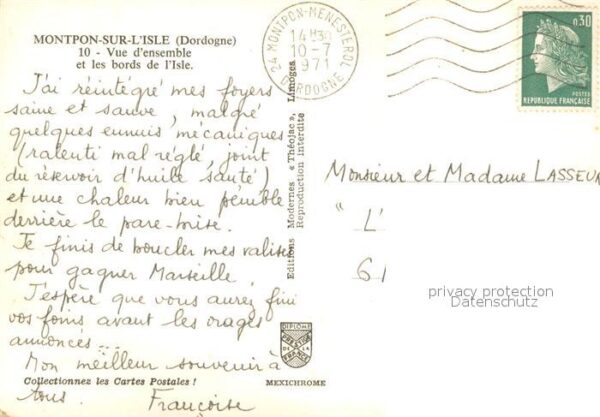 MONTPON-SUR-L'ISLE (Dordogne)
10 - Vue d'ensemble
et les bords de l'Isle.
J'ai réintégré mes foyers
saine et sauve, malgré
quelques ennuis mécaniques
(ralenti mal réglé, joint
du réservoir d'huile sauté)
et une chaleur bien pénible
derrière le pare-brise.
Je finis de boucler mes valises
pour gagner Marseille.
J'espère que vous aurez fini
vos foins avant les orages
annoncés...
Mon meilleur souvenir à
tous. Françoise
Collectionnez les Cartes Postales !
Editions Modernes « Théojac », Limoges
Reproduction interdite
DIPLOME
PRESTIGE
DE LA
FRANCE
MEXICHROME
24 MONTPON-MENESTEROL
14H30
10-7
1971
DORDOGNE
0,30
POSTES
REPUBLIQUE FRANÇAISE
Monsieur et Madame LASSEUR
"L'
61
privacy protection
Datenschutz